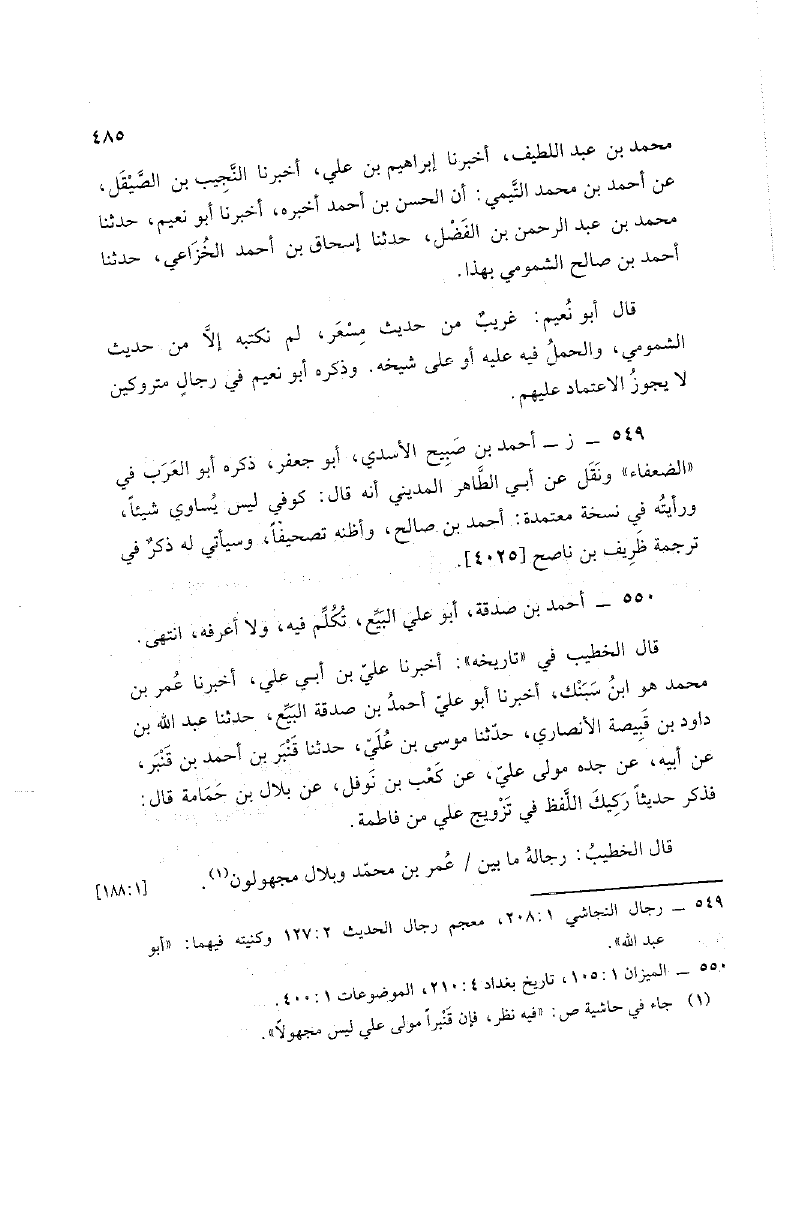 ٤٨٥
محمد بن عبد اللطيف، أخبرنا إبراهيم بن علي، أخبرنا النَّجِيب بن الصَّيْقَل،
عن أحمد بن محمد التَّيمي: أن الحسن بن أحمد أخبره، أخبرنا أبو نعيم، حدثنا
محمد بن عبد الرحمن بن الفَضْل، حدثنا إسحاق بن أحمد الخُزَاعي، حدثنا
أحمد بن صالح الشمومي بهذا.
قال أبو نُعيم: غريبٌ من حديث مِسْعَر، لم نكتبه إلاَّ من حديث
الشمومي، والحملُ فيه عليه أو على شيخه. وذكره أبو نعيم في رجالٍ متروكين
لا يجوزُ الاعتماد عليهم.
٥٤٩ ــ ز ــ أحمد بن صَبِيح الأسدي، أبو جعفر، ذكره أبو العَرَب في
«الضعفاء» ونَقَل عن أبـي الطَّاهر المديني أنه قال: كوفي ليس يُساوي شيئاً،
ورأيتُه في نسخة معتمدة: أحمد بن صالح، وأظنه تصحيفاً، وسيأتي له ذكرٌ في
ترجمة ظَرِيف بن ناصح [٤٠٢٥].
٥٥٠ ــ أحمد بن صدقة، أبو علي البَيِّع، تُكُلِّم فيه، ولا أعرفه، انتهى.
قال الخطيب في «تاريخه»: أخبرنا عليّ بن أبـي علي، أخبرنا عُمر بن
محمد هو ابنُ سَبَنْك، أخبرنا أبو عليّ أحمدُ بن صدقة البَيِّع، حدثنا عبد الله بن
داود بن قَبِيصة الأنصاري، حدّثنا موسى بن عُلَيّ، حدثنا قَنْبَر بن أحمد بن قَنْبَر،
عن أبيه، عن جده مولى عليّ، عن كَعْب بن نَوفل، عن بلال بن حَمَامة قال:
فذكر حديثاً رَكِيكَ اللَّفظ في تَزْويج علي من فاطمة.
قال الخطيبُ: رجالهُ ما بين / عُمر بن محمّد وبلال مجهولون(١). [١٨٨:١]
٥٤٩ ــ رجال النجاشي ٢٠٨:١، معجم رجال الحديث ١٢٧:٢ وكنيته فيهما: «أبو
عبد الله».
٥٥٠ ــ الميزان ١٠٥:١، تاريخ بغداد ٢١٠:٤، الموضوعات ٤٠٠:١.
(١) جاء في حاشية ص: «فيه نظر، فإن قَنْبراً مولى علي ليس مجهولاً».